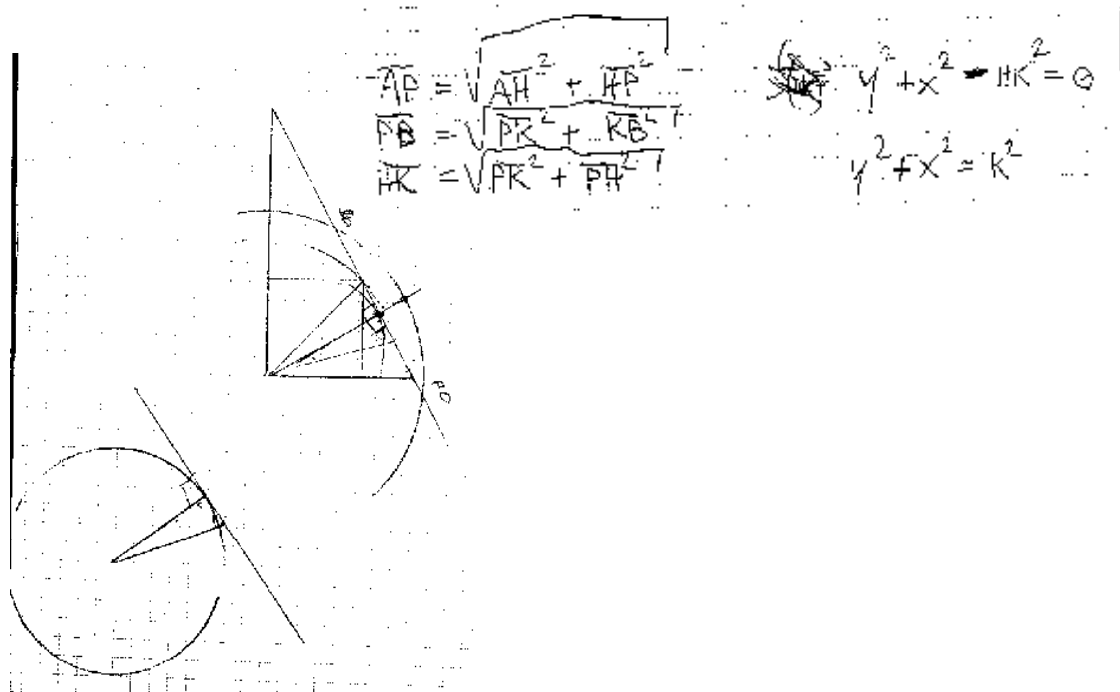 AP = √AH² + HP²
PB = √PK² + KB²
HK = √PK² + PH²
y² + x² - HK² = 0
y² + x² = K²